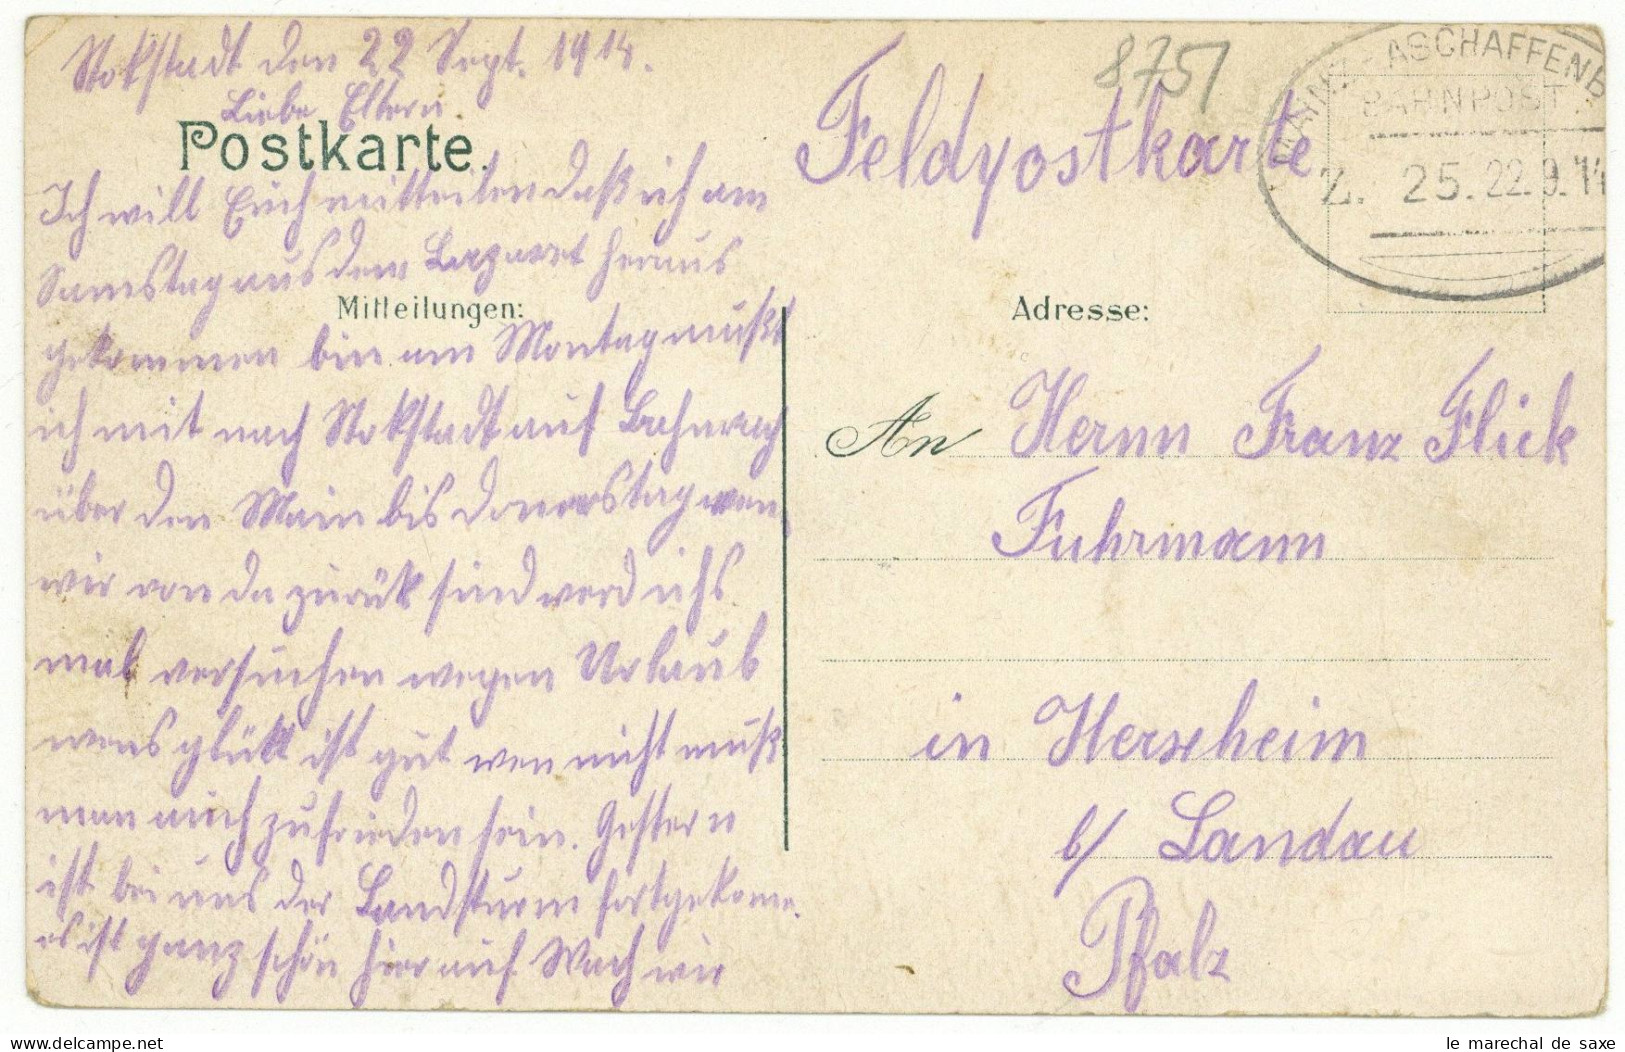 Stokstadt den 22 Sept. 1914.
Liebe Eltern
Postkarte.
Ich will Euch mitteilen daß ich am
Samstag aus dem Lazaret heraus
Mitteilungen:
gekommen bin am Montag mußt
ich mit nach Stokstadt auf Bahnwach
über den Main bis Donerstag wen
wir von da zurük sind werd ichs
mal versuchen wegen Urlaub
wens glükt ist gut wen nicht muß
man auch zufrieden sein. Gestern
ist bei uns der Landsturm fortgekome.
es ist ganz schön hier auf Wach wir
8751
Feldpostkarte
MAINZ - ASCHAFFENB
BAHNPOST
Z. 25. 22.9.14
Adresse:
An Herrn Franz Flick
Fuhrmann
in Herxheim
b/ Landau
Pfalz
le marechal de saxe